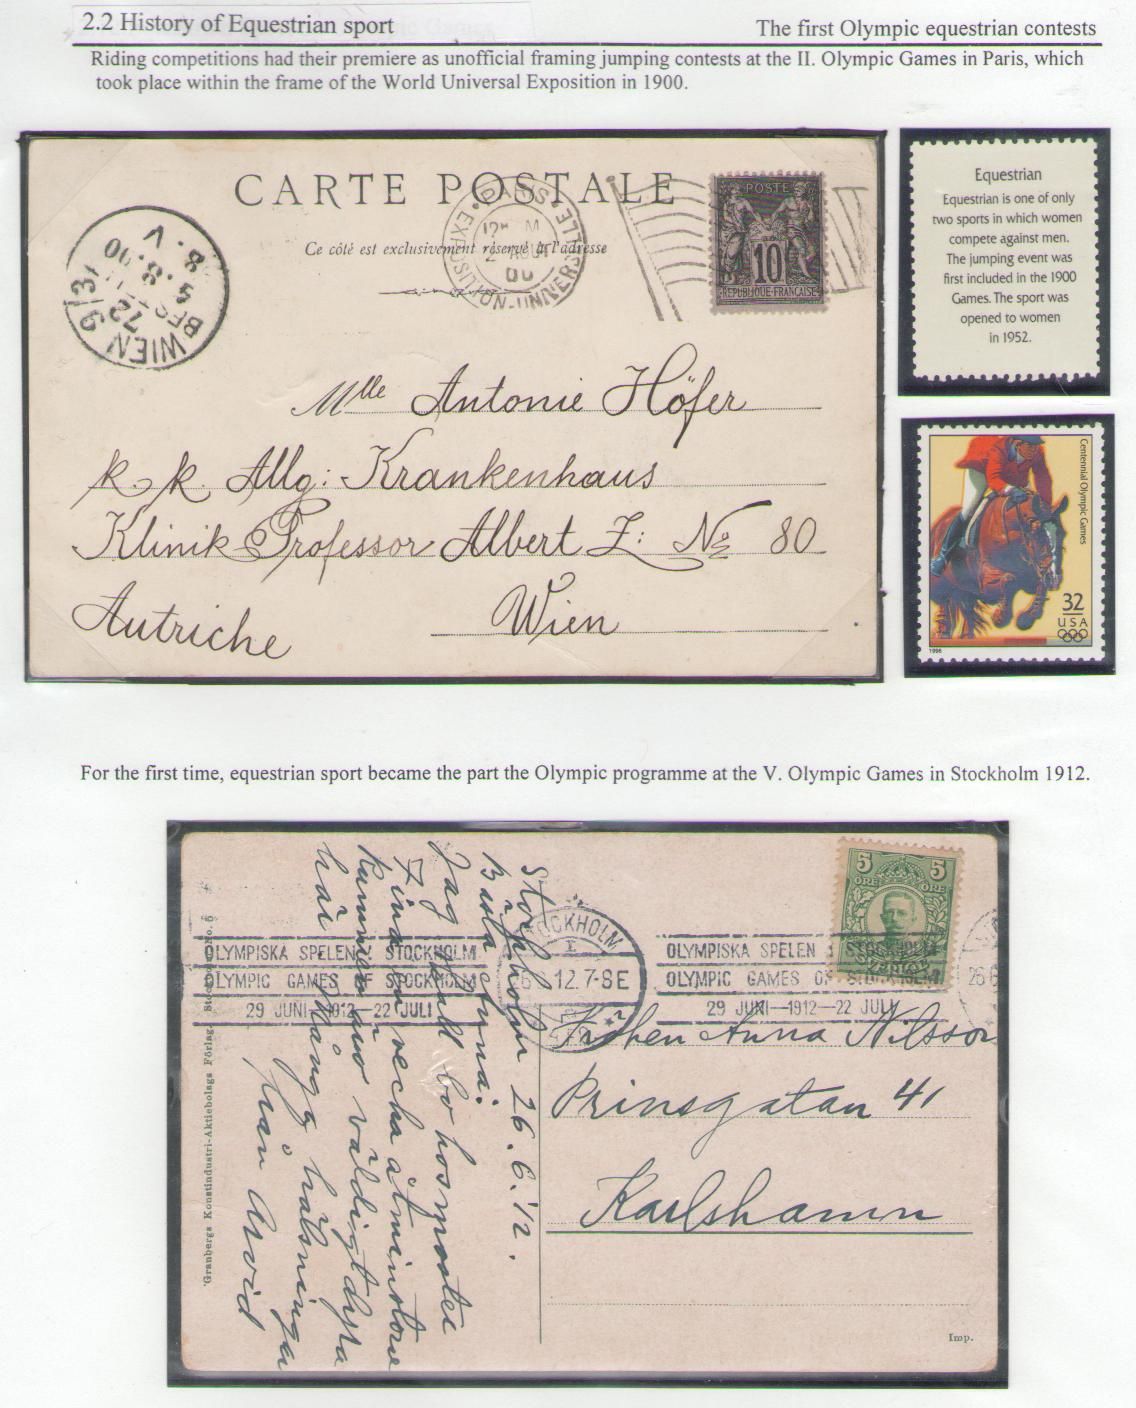 2.2 History of Equestrian sport
The first Olympic equestrian contests
Riding competitions had their premiere as unofficial framing jumping contests at the II. Olympic Games in Paris, which
took place within the frame of the World Universal Exposition in 1900.
CARTE POSTALE
Ce côté est exclusivement réservé à l'adresse
PARIS
EXPOSITION-UNIVERSELLE
POSTE
10
REPUBLIQUE FRANÇAISE
WIEN 9/3
72
5.8.00
8.V
Mlle Antonie Höfer
k. k. Allg: Krankenhaus
Klinik Professor Albert Z: No 80
Autriche Wien
Equestrian
Equestrian is one of only
two sports in which women
compete against men.
The jumping event was
first included in the 1900
Games. The sport was
opened to women
in 1952.
Centennial Olympic Games
32
USA
1996
For the first time, equestrian sport became the part the Olympic programme at the V. Olympic Games in Stockholm 1912.
5 5
ÖRE ÖRE
STOCKHOLM
12.7-8E
OLYMPISKA SPELEN STOCKHOLM
OLYMPIC GAMES OF STOCKHOLM
29 JUNI—1912—22 JULI
OLYMPISKA SPELEN STOCKHOLM
OLYMPIC GAMES OF STOCKHOLM
29 JUNI—1912—22 JULI
Stockholm 26.6.12.
Jag skall bo hos
väldigt dyra
här. Många hälsningar
från Arvid
Fröken Anna Nilsson
Prinsgatan 41
Karlshamn
Granbergs Konstindustri-Aktiebolags Förlag, Stockholm
Imp.